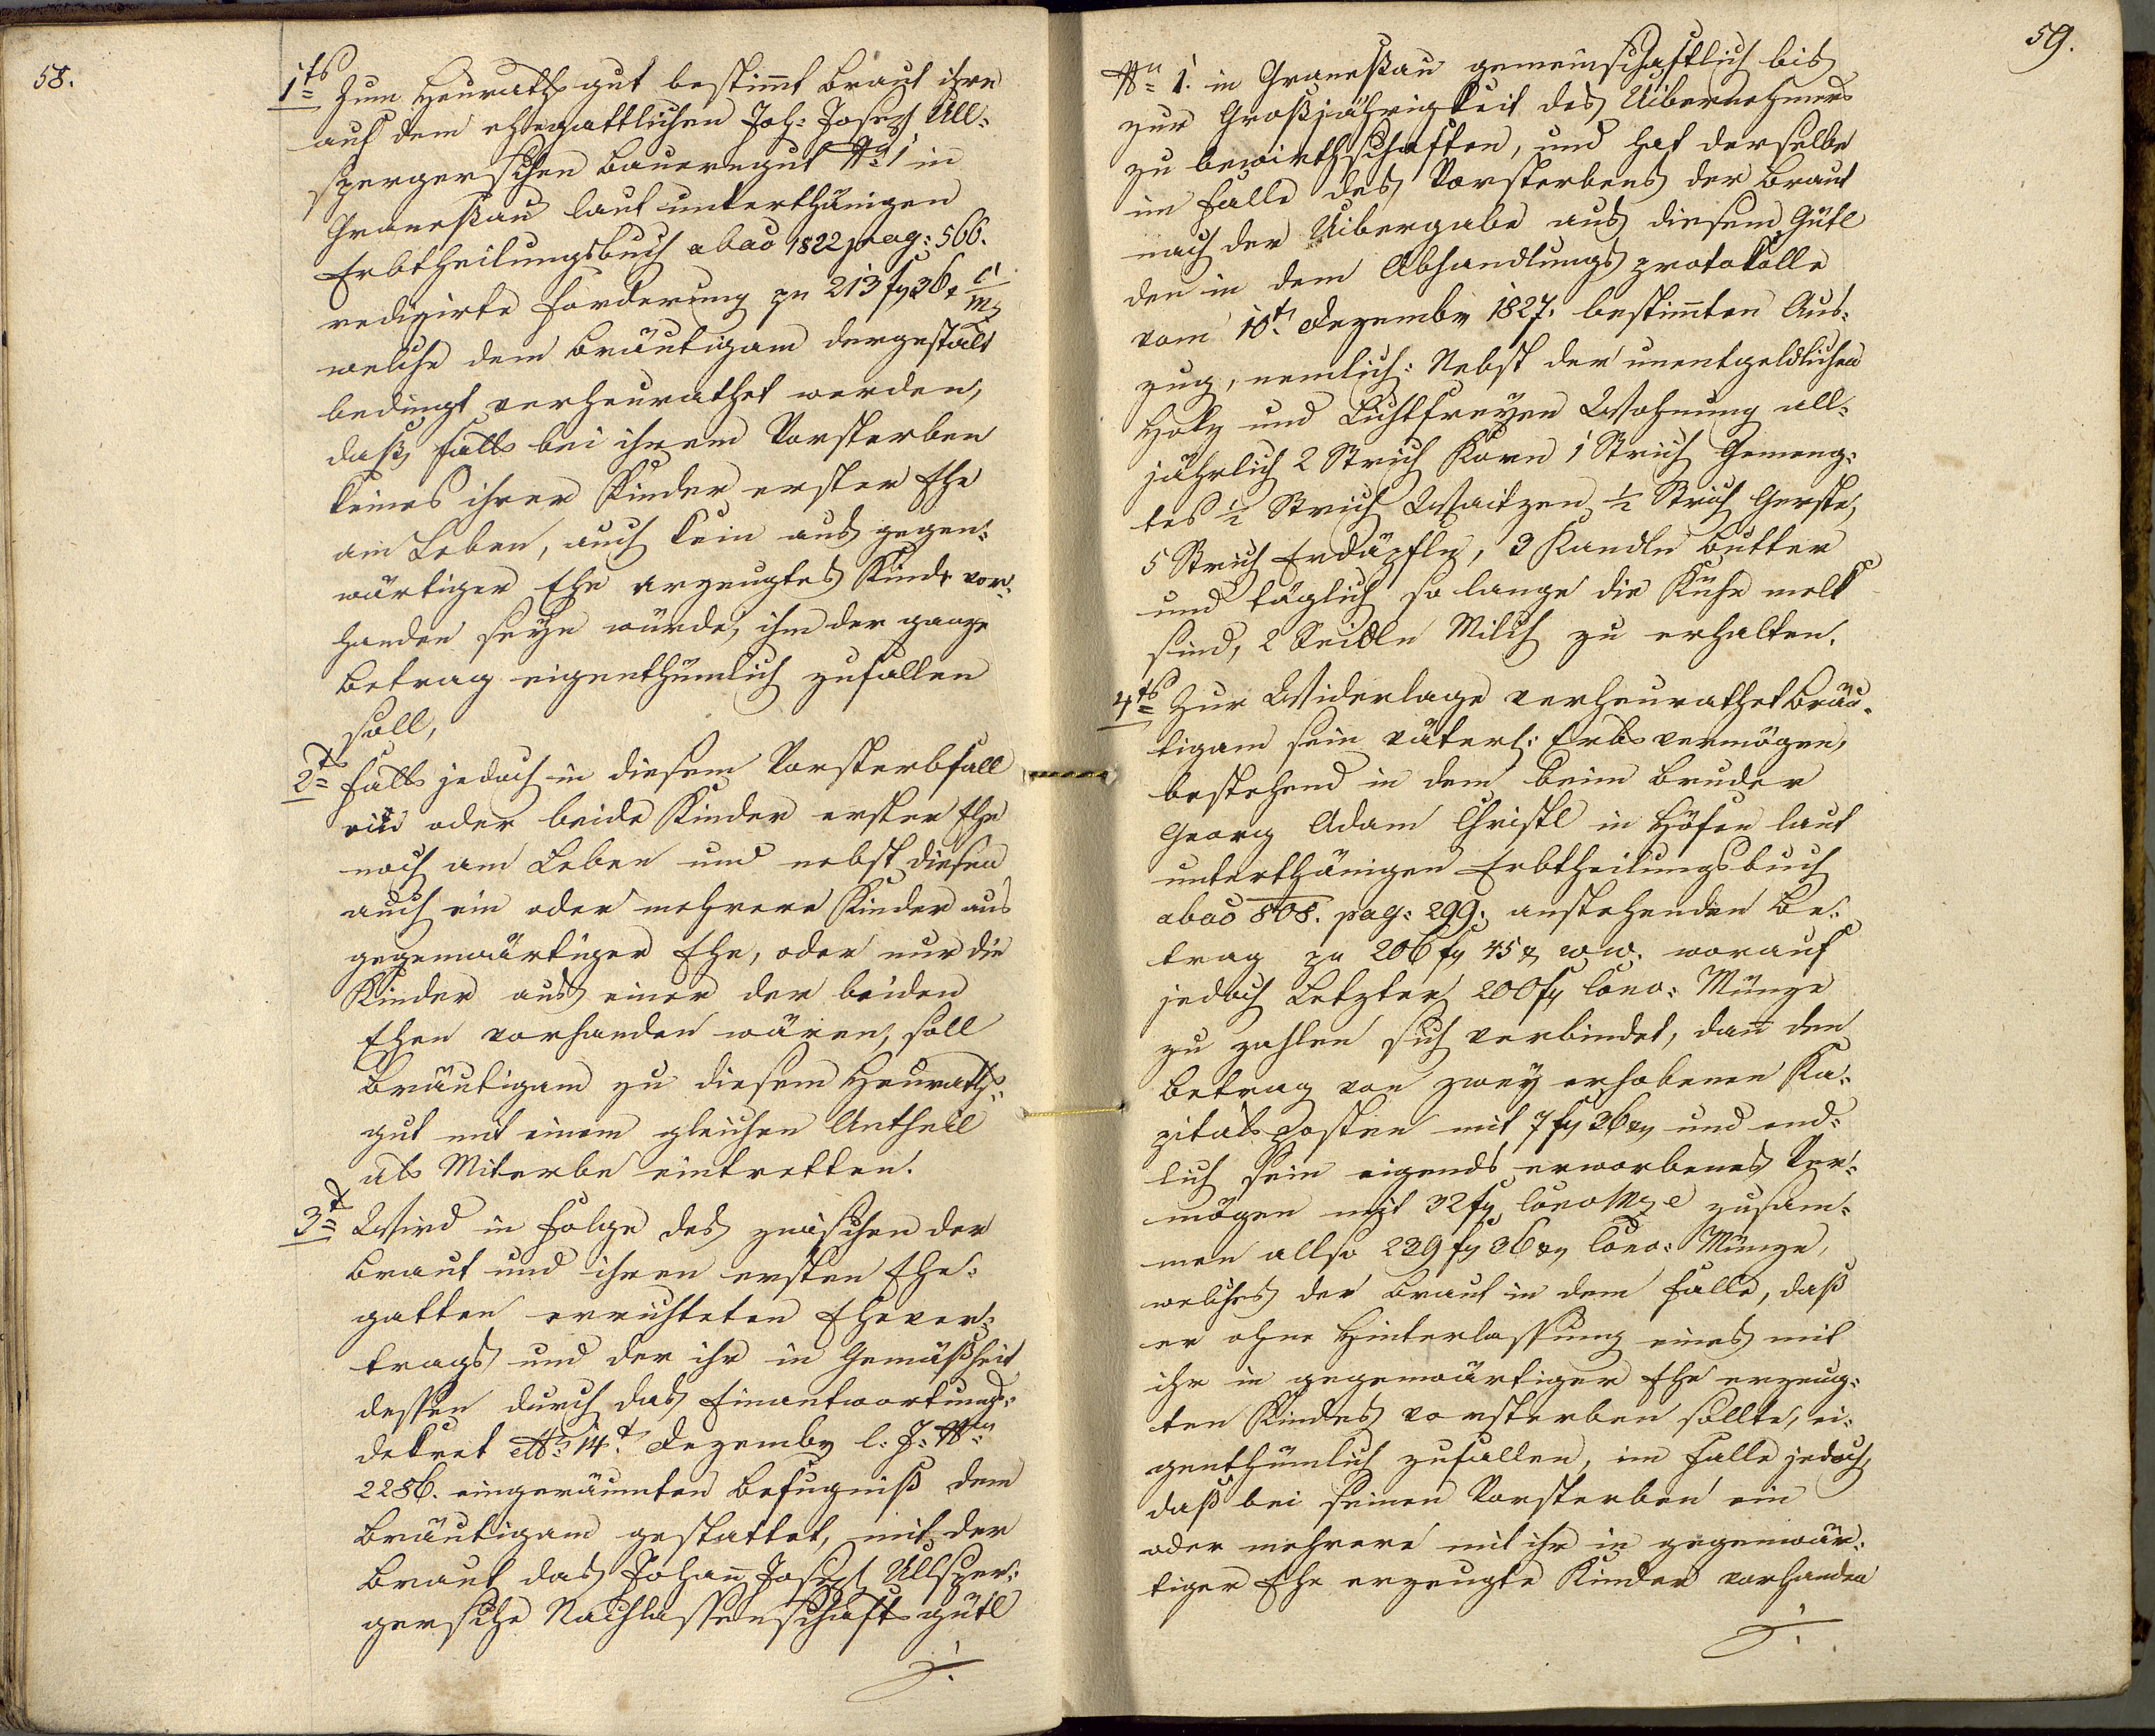 58.
1ts Zum Heurathsgut bestimt Braut ihre
auf dem ehegattlichen Joh: Joseph Ull-
spergerschen Bauerngut No 1 in
Graneßau laut unterthänigen
Erbtheilungsbuch abao 1822 pag: 566.
redizirte Forderung pr 213 f 36 x C.M.
welche dem Bräutigam dergestalt
bedingt verheurathet werden,
daß, falls bei ihrem Vorsterben
keines ihrer Kinder erster Ehe
am Leben, auch kein aus gegen-
wärtiger Ehe erzeugtes Kind vor-
handen seyn würde, ihm der ganze
Betrag eigenthümlich zufallen
soll,
2ts Falls jedoch in diesem Vorsterbfall
ein oder beide Kinder erster Ehe
noch am Leben und nebst diesen
auch ein oder mehrere Kinder aus
gegenwärtiger Ehe, oder nur die
Kinder aus einer der beiden
Ehen vorhanden wären, soll
Bräutigam zu diesem Heuraths-
gut mit einem gleichen Antheil
als Miterbe eintretten.
3t Wird in Folge des zwischen der
Braut und ihren ersten Ehe-
gatten errichteten Ehever-
trags und der ihr in Gemäßheit
dessen durch das Einantwortungs-
dekret dto 14t Dezember l: J: No
2286. eingeräumten Befugniß dem
Bräutigam gestattet, mit der
Braut das Johann Joseph Ullsper-
gersche Nachlassenschafts gütl
./.
59.
No 1. in Graneßau gemeinschaftlich bis
zur Großjährigkeit des Uibernehmers
zu bewirthschaften, und hat derselbe
im Falle des Vorsterbens der Braut
nach der Uibergabe aus diesem Gütl
den in dem Abhandlungsprotokolle
vom 10t Dezember 1827. bestimten Aus-
zug, nemlich: Nebst der unentgeldlichen
Holz und Lichtfreyen Wohnung all-
jährlich 2 Strich Korn 1 Strich Gemeng-
tes ½ Strich Waitzen, ½ Strich Gerste,
5 Strich Erdäpfln, 3 Kandln Butter
und täglich so lange die Kühe melk
sind, 2 Seidln Milch zu erhalten.
4ts Zur Widerlage verheurathet Bräu-
tigam sein väterl: Erbsvermögen,
bestehend in dem beim Bruder
Georg Adam Christl in Höfen laut
unterthänigen Erbtheilungsbuch
abao 808. pag: 299. anstehenden Be-
trag pr 206 f 45 x ww. worauf
jedoch Letzter 200 f Conv: Münze
zu zahlen sich verbindet, dann den
Betrag von zwey erhobenen Ka-
pitalsposten mit 7 f 36 x und end-
lich sein eigends erworbenes Ver-
mögen mit 32 f Conv Mze zusam-
men allso 239 f 36 x Conv: Münze,
welches der Braut in dem Falle, daß
er ohne Hinterlassung eines mit
ihr in gegenwärtiger Ehe erzeug-
ten Kindes vorsterben sollte, ei-
genthümlich zufallen, im Falle jedoch,
daß bei seinen Vorsterben ein
oder mehrere mit ihr in gegenwär-
tiger Ehe erzeugte Kinder vorhanden
./.